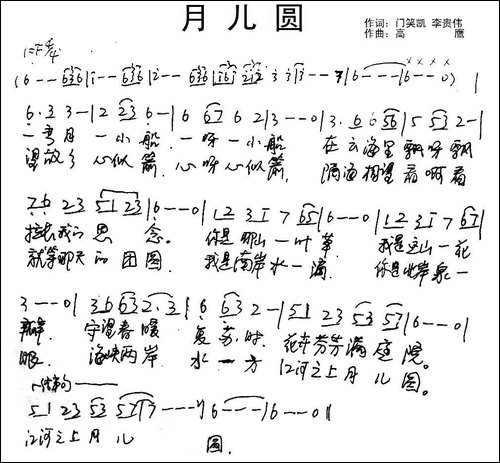 月儿圆
作词：门笑凯 李贵伟
作曲：高 鹰
1=F 4/4
6·3 3--|2 23 6-|6 67 6 2|3--0|3·6 6 56|5 53 2-|
一弯月 一小船 一呀一小船 在云海里飘呀飘
望故乡 心似箭 心呀心似箭 隔海相望看啊看
76 23 51 23|6--0|12 31 7 65|6--0|12 31 7 67|
我的思 念。 你是那山一叶草 我是这山一花
就等聊天的团圆 我是南岸水一滴 你是北岸泉一
3--0|36 63 2·3|6 63 2-|51 23 53 53|6--0|
瓣 守望春暖 复苏时 花卉芳芳满庭院。
眼 海峡两岸 水一方 江河之上月儿圆。
结束句
51 23 53 57|7---|6---|6--0‖
江河之上月儿 圆.